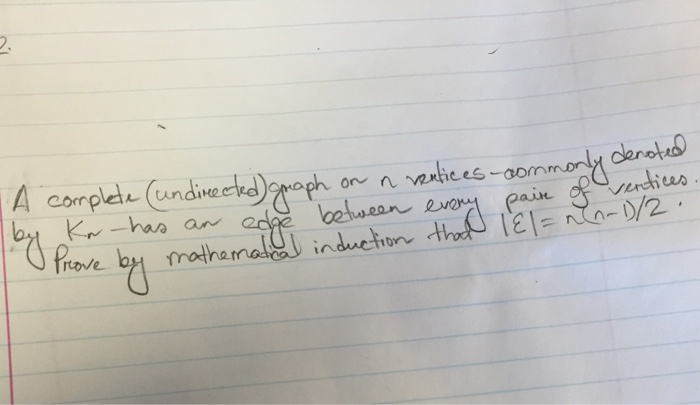 2.
A complete (undirected) graph on n vertices - commonly denoted
by Kn - has an edge between every pair of vertices.
Prove by mathematical induction that |E| = n(n-1)/2.